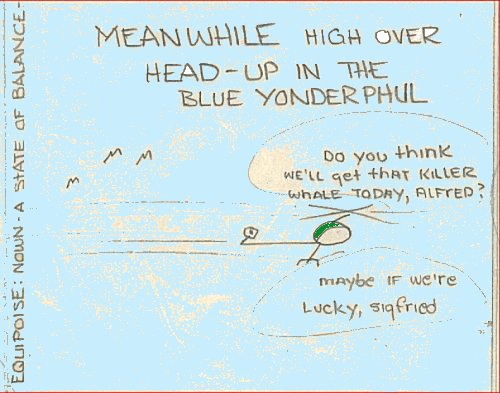 MEANWHILE HIGH OVER
HEAD-UP IN THE
BLUE YONDERPHUL
DO YOU think
WE'LL get that KILLER
WHALE TODAY, ALFRED?
maybe IF we're
Lucky, sigfried
EQUIPOISE: NOWN - A STATE OF BALANCE-